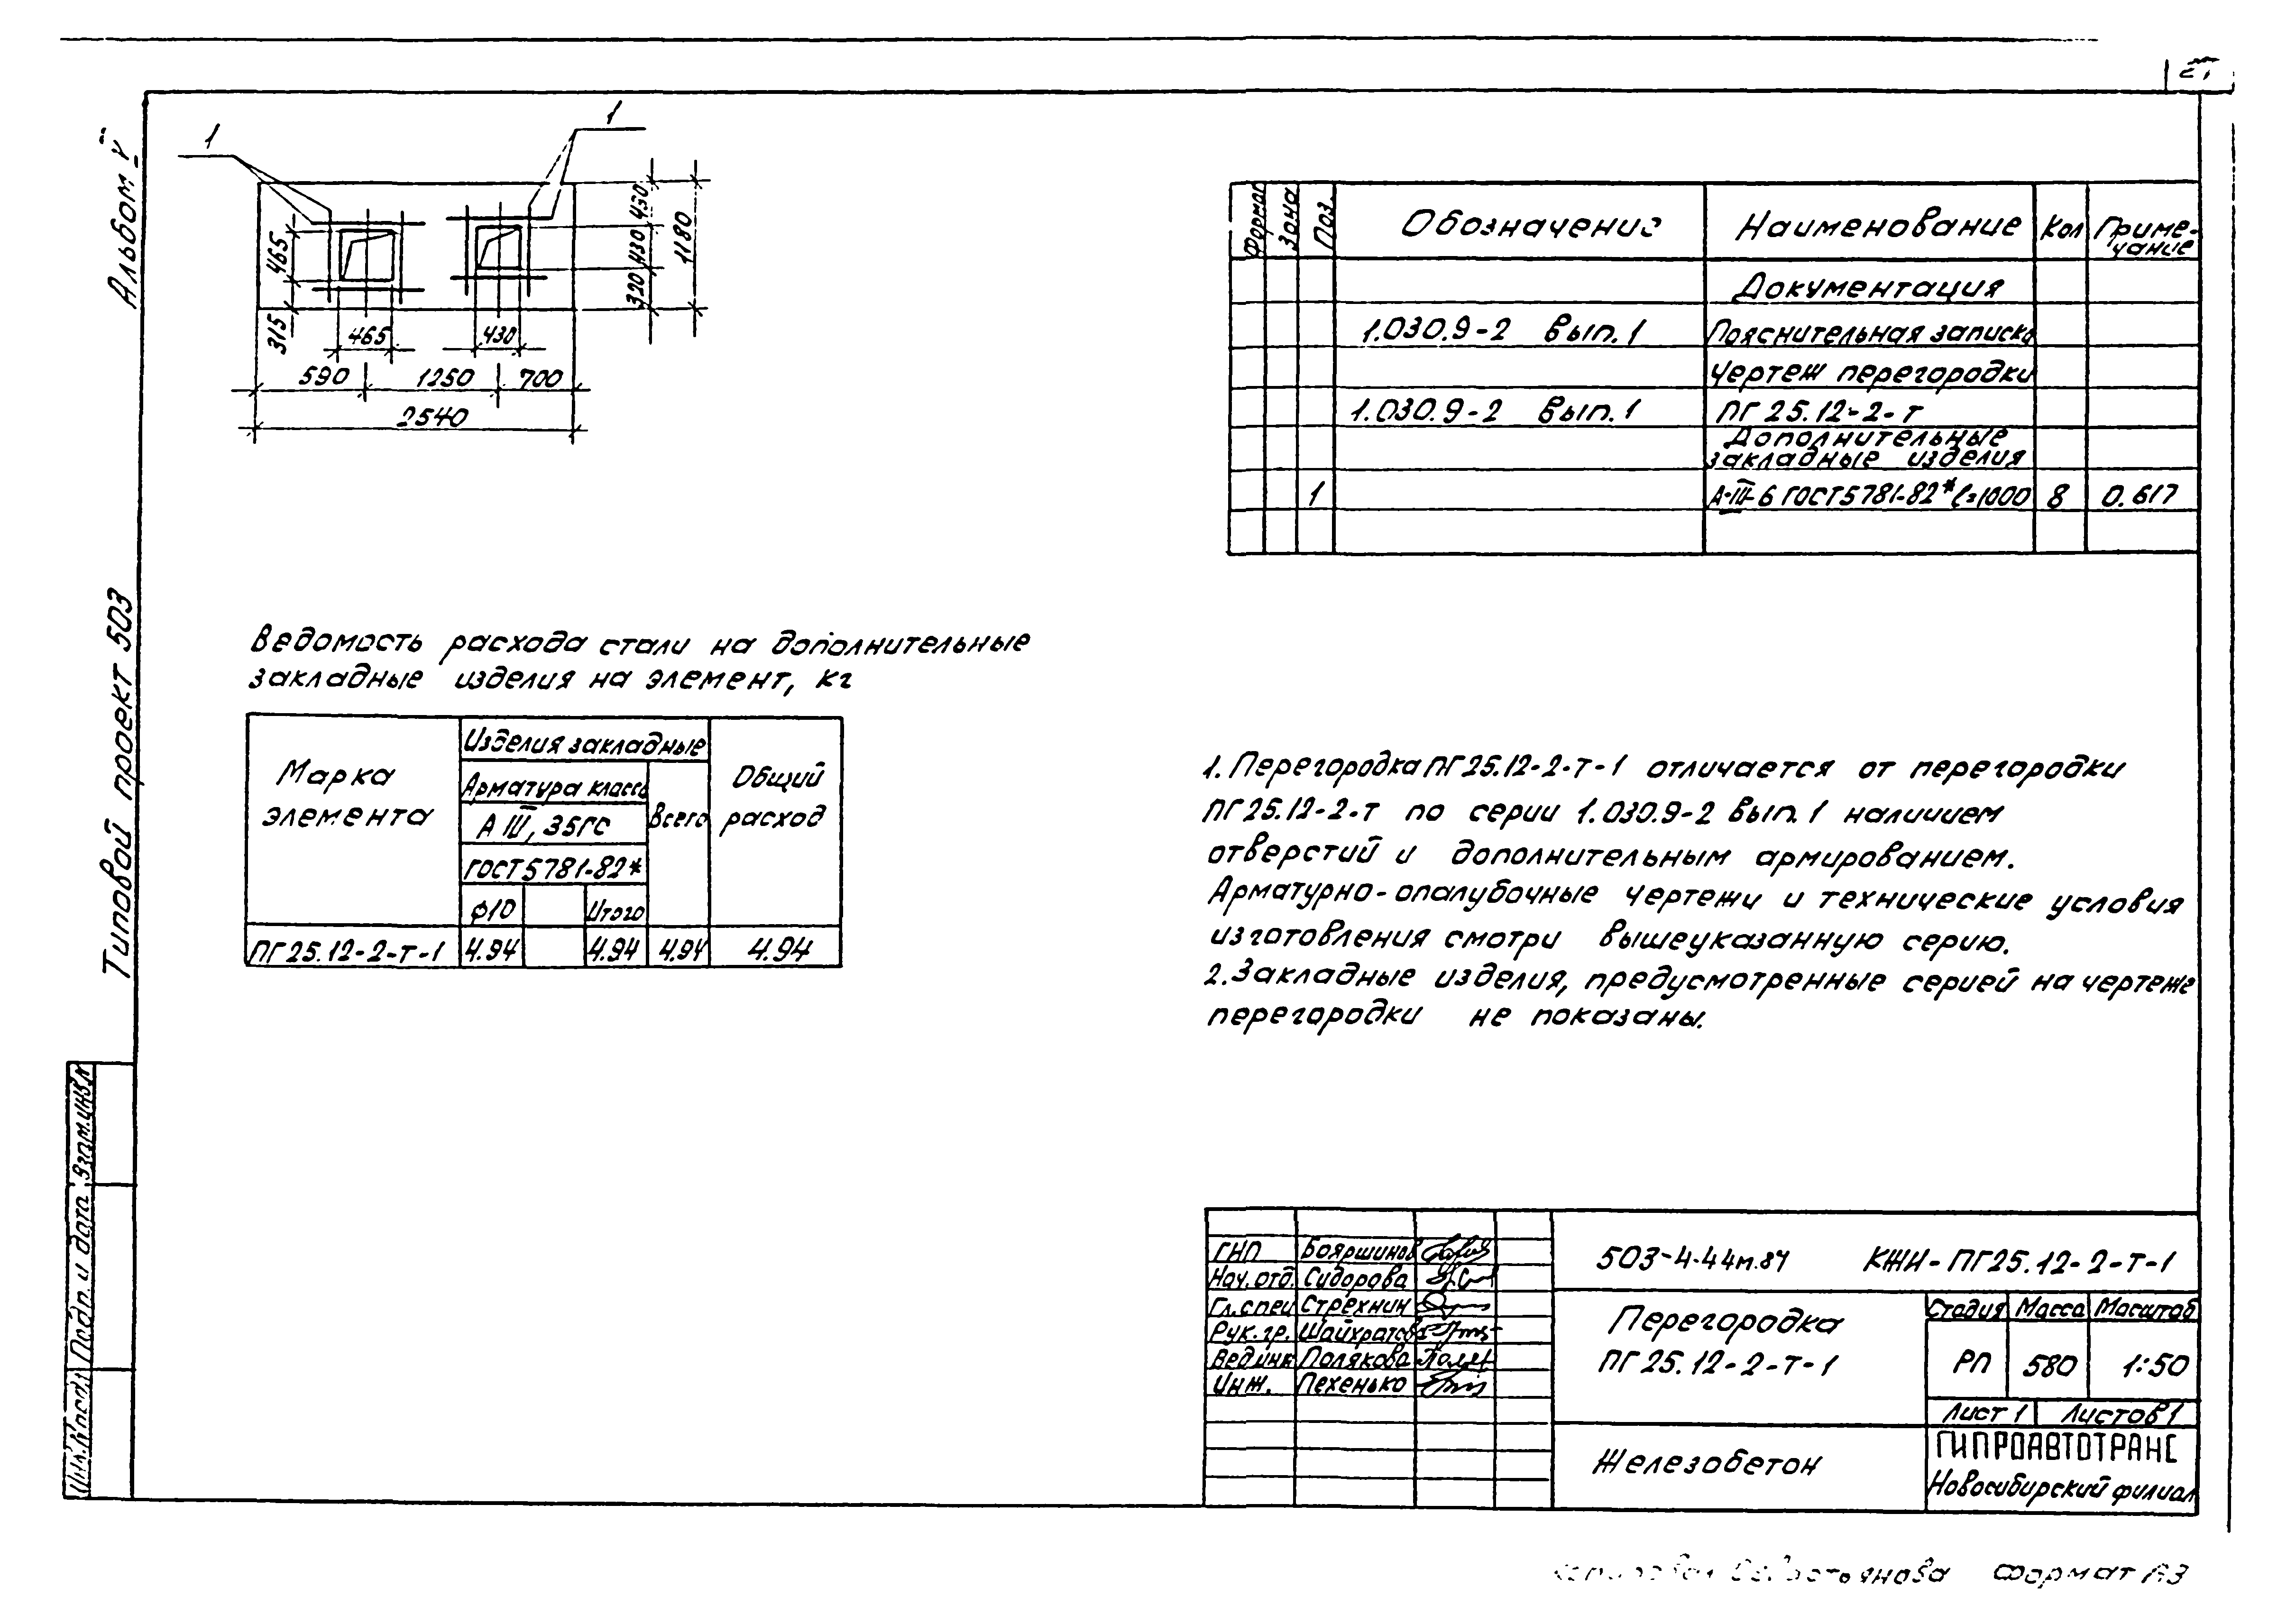 Альбом V
Типовой проект 503
1
1
465
315
465
430
590
1250
700
2540
430
430
320
1180
Формат
Зона
Поз.
Обозначение
Наименование
Кол
Приме-
чание
Документация
1.030.9-2 вып.1
Пояснительная записка
Чертеж перегородки
1.030.9-2 вып.1
ПГ 25.12-2-т
Дополнительные
закладные изделия
1
А-III-6 ГОСТ 5781-82* ℓ=1000
8
0.617
Ведомость расхода стали на дополнительные
закладные изделия на элемент, кг
Марка
элемента
Изделия закладные
Арматура класса
А III, 35ГС
ГОСТ 5781-82*
ϕ10
Итого
Всего
Общий
расход
ПГ25.12-2-т-1
4.94
4.94
4.94
4.94
1. Перегородка ПГ25.12-2-т-1 отличается от перегородки
ПГ25.12-2-т по серии 1.030.9-2 вып.1 наличием
отверстий и дополнительным армированием.
Арматурно-опалубочные чертежи и технические условия
изготовления смотри вышеуказанную серию.
2. Закладные изделия, предусмотренные серией на чертеже
перегородки не показаны.
Взам.инв.№
Подп. и дата
Инв.№подл.
ГНП Бояршинов
Нач.отд. Сидорова
Гл.спец Стрехнин
Рук.гр. Шайхратова
Вед.инж Полякова
Инж. Пехенько
503-4-44м.87 КЖИ-ПГ25.12-2-т-1
Перегородка
ПГ 25.12-2-т-1
Стадия
Масса
Масштаб
РП
580
1:50
Лист 1
Листов 1
Железобетон
ГИПРОАВТОТРАНС
Новосибирский филиал
Формат А3